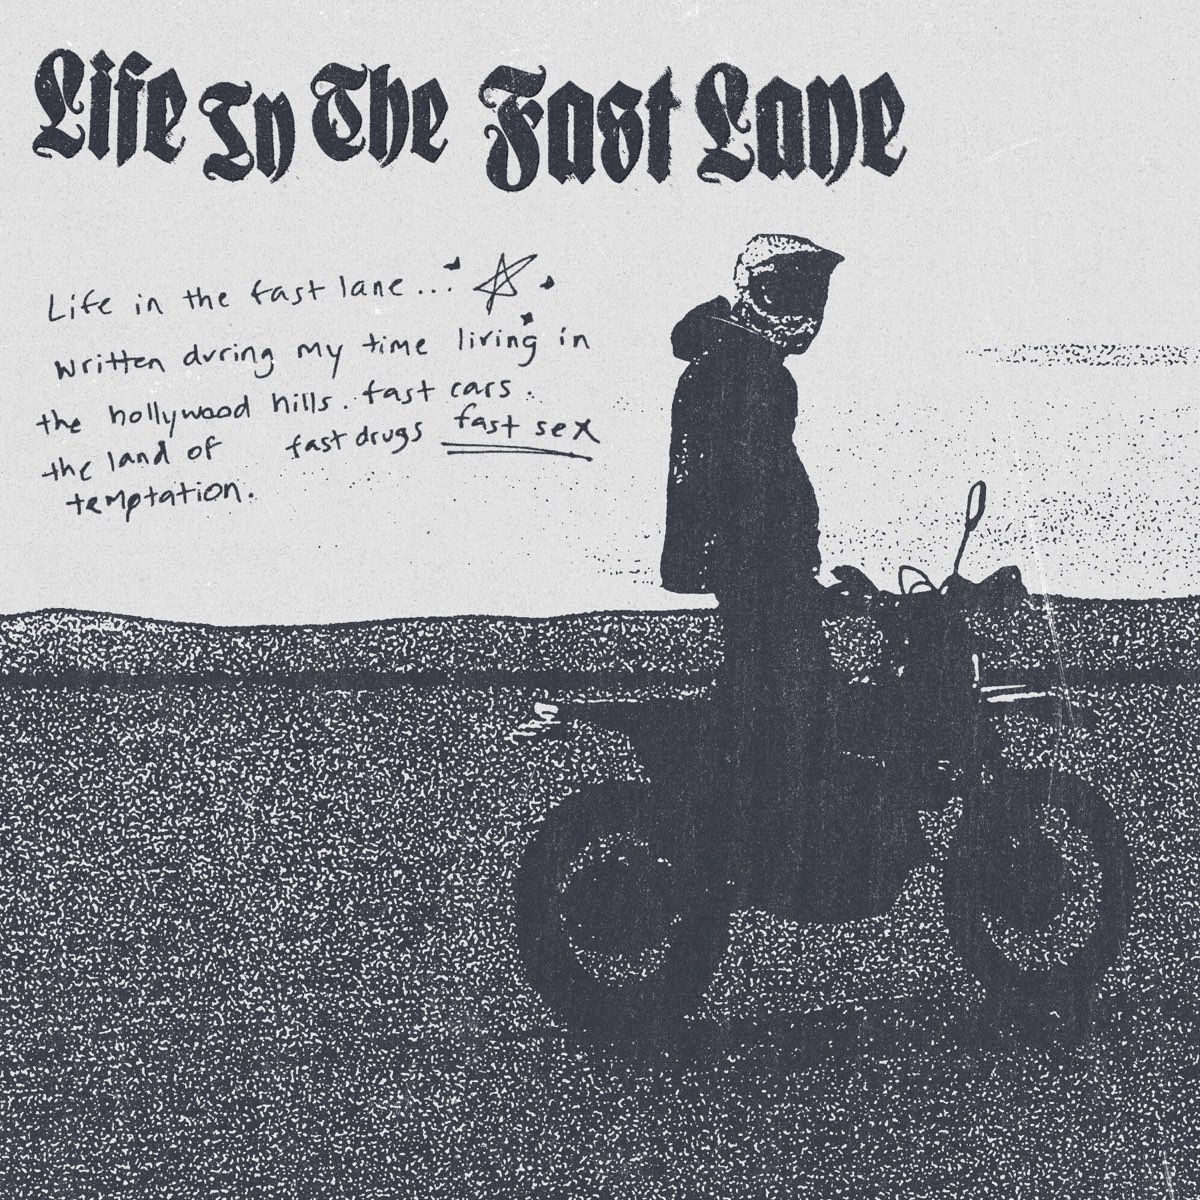 Life In The Fast Lane
Life in the fast lane...
written during my time living in
the hollywood hills. fast cars.
the land of fast drugs fast sex
temptation.